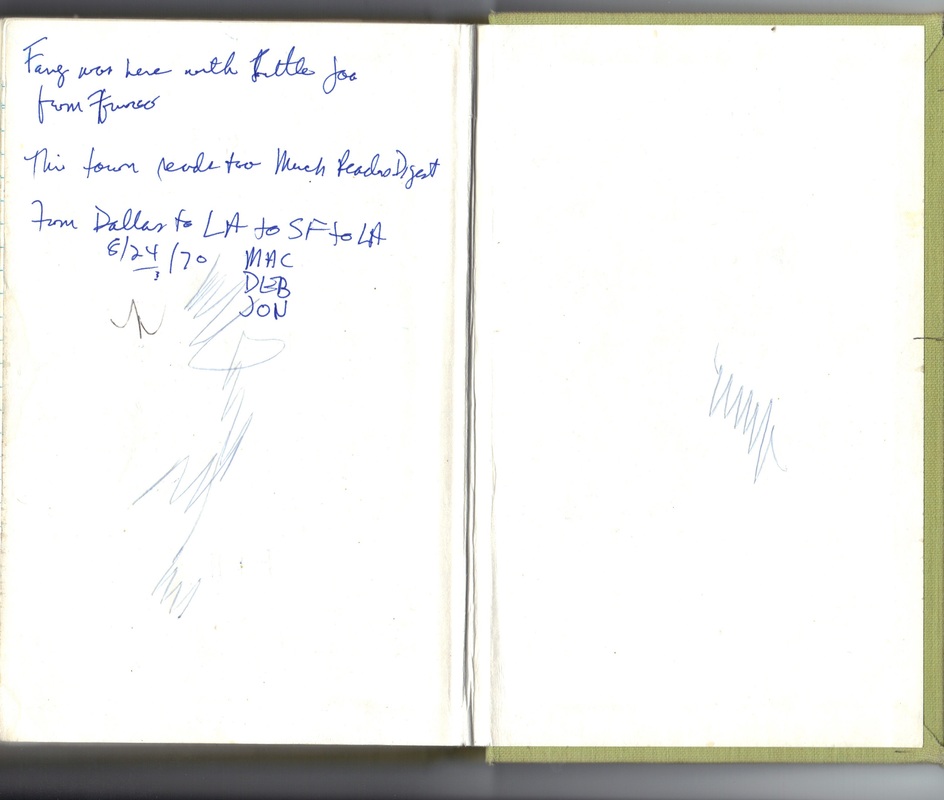 Fang was here with Little Joe
from Frisco
This town reads too Much Readers Digest
From Dallas to LA to SF to LA
8/24/70 MAC
DEB
JON